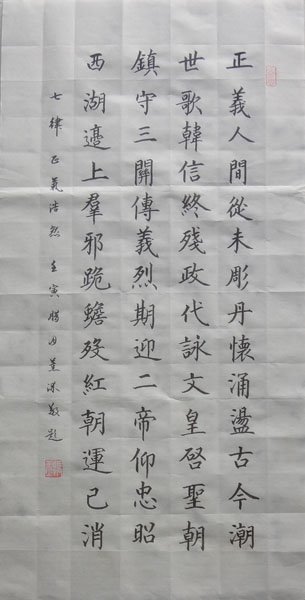 正義人間從未彫丹懷涌盪古今潮
世歌韓信終殘政代詠文皇啓聖朝
鎮守三關傳義烈期迎二帝仰忠昭
西湖邊上羣邪跪蟾歿紅朝運已消
七律 正氣浩然 壬寅 敬題